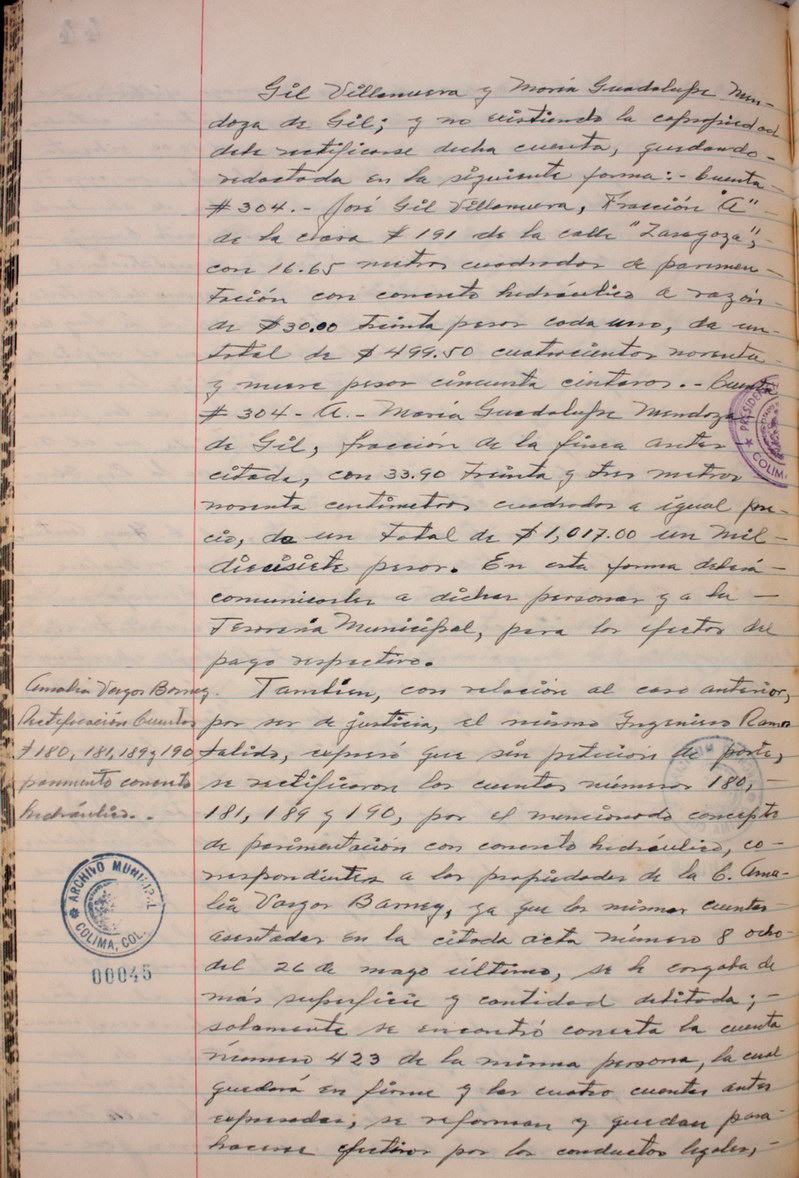 Gil Villanueva y María Guadalupe Men-
doza de Gil; y no existiendo la copropiedad
debe rectificarse dicha cuenta, quedando-
redactada en la siguiente forma:- Cuenta
#304.- José Gil Villanueva, Fracción "A"-
de la casa #191 de la calle "Zaragoza",-
con 16.65 metros cuadrados de pavimen-
tación con concreto hidráulico a razón
de $30.00 treinta pesos cada uno, da un-
total de $499.50 cuatrocientos noventa-
y nueve pesos cincuenta centavos.- Cuenta
#304-A.- María Guadalupe Mendoza
de Gil, fracción de la finca antes-
citada, con 33.90 treinta y tres metros
noventa centímetros cuadrados a igual pre-
cio, da un total de $1,017.00 un mil-
diecisiete pesos. En esta forma deberá-
comunicarles a dichas personas y a la-
Tesorería Municipal, para los efectos del
pago respectivo.
Amalia Vargas Barney.
Rectificación Cuentas
#180, 181, 189 y 190
pavimento concreto
hidráulico.-
También, con relación al caso anterior,
por ser de justicia, el mismo Ingeniero Ramos
Salido, expresó que sin petición de parte,
se rectificaron las cuentas números 180,-
181, 189 y 190, por el mencionado concepto
de pavimentación con concreto hidráulico, co-
rrespondientes a las propiedades de la C. Ama-
lia Vargas Barney, ya que las mismas cuentas-
asentadas en la citada acta número 8 ocho-
del 26 de mayo último, se le cargaba de
más superficie y cantidad debitada;-
solamente se encontró correcta la cuenta
número 423 de la misma persona, la cual
quedará en firme y las cuatro cuentas antes
expresadas, se reforman y quedan para-
hacerse efectivas por los conductos legales,-
PRESIDEN
COLIMA
ARCHIVO MUNICIPAL
COLIMA, COL.
00045